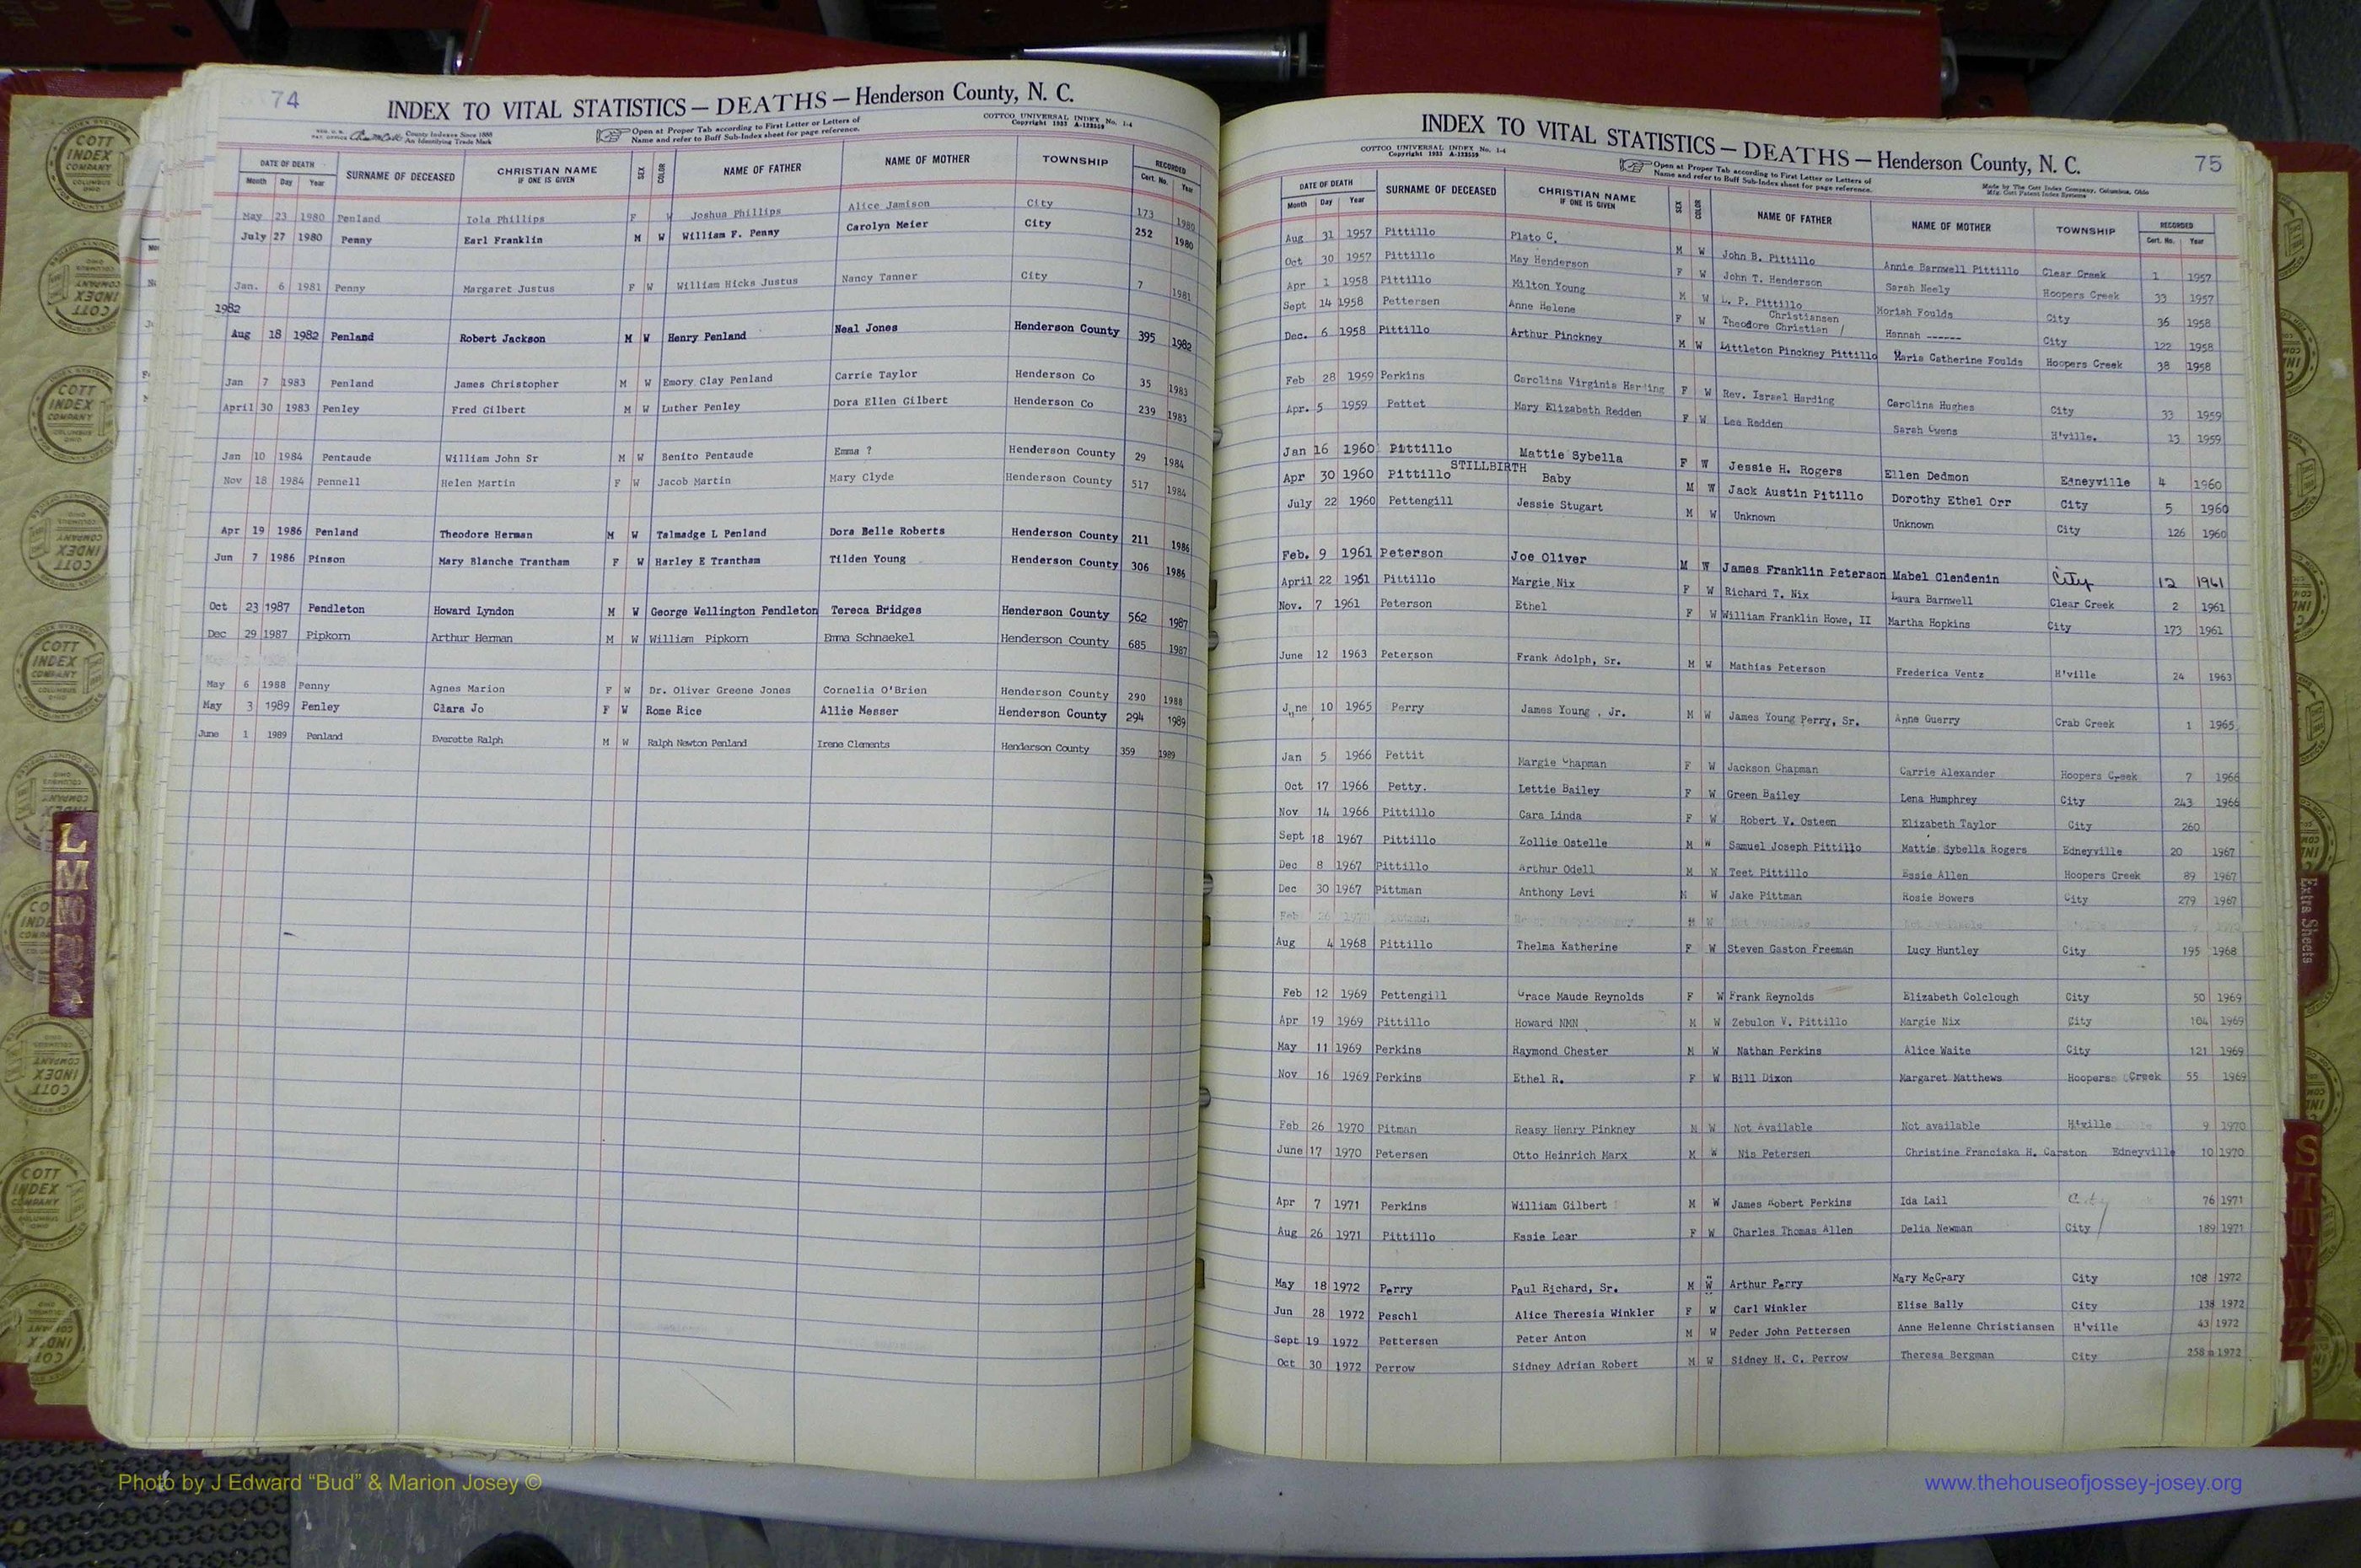 74
INDEX TO VITAL STATISTICS — DEATHS — Henderson County, N. C.
County Indexes Since 1888
An Identifying Trade Mark
Open at Proper Tab according to First Letter or Letters of
Name and refer to Buff Sub-Index sheet for page reference.
COTTCO UNIVERSAL INDEX No. 1-4
DATE OF DEATH SURNAME OF DECEASED CHRISTIAN NAME IF ONE IS GIVEN SEX COLOR NAME OF FATHER NAME OF MOTHER TOWNSHIP RECORDED
Month Day Year Cert. No. Year
May 23 1980 Penland Iola Phillips F W Joshua Phillips Alice Jamison City 173 1980
July 27 1980 Penny Earl Franklin M W William F. Penny Carolyn Meier City 252 1980
Jan. 6 1981 Penny Margaret Justus F W William Hicks Justus Nancy Tanner City 7 1981
1982
Aug 18 1982 Penland Robert Jackson M W Henry Penland Neal Jones Henderson County 395 1982
Jan 7 1983 Penland James Christopher M W Emory Clay Penland Carrie Taylor Henderson Co 35 1983
April 30 1983 Penley Fred Gilbert M W Luther Penley Dora Ellen Gilbert Henderson Co 239 1983
Jan 10 1984 Pentaude William John Sr M W Benito Pentaude Emma ? Henderson County 29 1984
Nov 18 1984 Pennell Helen Martin F W Jacob Martin Mary Clyde Henderson County 517 1984
Apr 19 1986 Penland Theodore Herman M W Talmadge L Penland Dora Belle Roberts Henderson County 211 1986
Jun 7 1986 Pinson Mary Blanche Trantham F W Harley E Trantham Tilden Young Henderson County 306 1986
Oct 23 1987 Pendleton Howard Lyndon M W George Wellington Pendleton Tereca Bridges Henderson County 562 1987
Dec 29 1987 Pipkorn Arthur Herman M W William Pipkorn Emma Schnaekel Henderson County 685 1987
May 6 1988 Penny Agnes Marion F W Dr. Oliver Greene Jones Cornelia O'Brien Henderson County 290 1988
May 3 1989 Penley Clara Jo F W Rome Rice Allie Messer Henderson County 294 1989
June 1 1989 Penland Everette Ralph M W Ralph Newton Penland Irene Clements Henderson County 359 1989
INDEX TO VITAL STATISTICS — DEATHS — Henderson County, N. C.
75
COTTCO UNIVERSAL INDEX No. 1-4
Open at Proper Tab according to First Letter or Letters of
Name and refer to Buff Sub-Index sheet for page reference.
Made by The Cott Index Company, Columbus, Ohio
DATE OF DEATH SURNAME OF DECEASED CHRISTIAN NAME IF ONE IS GIVEN SEX COLOR NAME OF FATHER NAME OF MOTHER TOWNSHIP RECORDED
Month Day Year Cert. No. Year
Aug 31 1957 Pittillo Plato C. M W John B. Pittillo Annie Barnwell Pittillo Clear Creek 1 1957
Oct 30 1957 Pittillo May Henderson F W John T. Henderson Sarah Neely Hoopers Creek 33 1957
Apr 1 1958 Pittillo Milton Young M W L. P. Pittillo Morish Foulds City 36 1958
Christiansen
Sept 14 1958 Pettersen Anne Helene F W Theodore Christian / Hannah ------ City 122 1958
Dec. 6 1958 Pittillo Arthur Pinckney M W Littleton Pinckney Pittillo Maria Catherine Foulds Hoopers Creek 38 1958
Feb 28 1959 Perkins Carolina Virginia Harding F W Rev. Israel Harding Carolina Hughes City 33 1959
Apr. 5 1959 Pettet Mary Elizabeth Redden F W Lee Redden Sarah Owens H'ville. 13 1959
Jan 16 1960 Pittillo Mattie Sybella F W Jessie H. Rogers Ellen Dedmon Edneyville 4 1960
STILLBIRTH
Apr 30 1960 Pittillo Baby M W Jack Austin Pitillo Dorothy Ethel Orr City 5 1960
July 22 1960 Pettengill Jessie Stugart M W Unknown Unknown City 126 1960
Feb. 9 1961 Peterson Joe Oliver M W James Franklin Peterson Mabel Clendenin City 12 1961
April 22 1961 Pittillo Margie Nix F W Richard T. Nix Laura Barnwell Clear Creek 2 1961
Nov. 7 1961 Peterson Ethel F W William Franklin Howe, II Martha Hopkins City 173 1961
June 12 1963 Peterson Frank Adolph, Sr. M W Mathias Peterson Frederica Ventz H'ville 24 1963
June 10 1965 Perry James Young , Jr. M W James Young Perry, Sr. Anne Guerry Crab Creek 1 1965
Jan 5 1966 Pettit Margie Chapman F W Jackson Chapman Carrie Alexander Hoopers Creek 7 1966
Oct 17 1966 Petty. Lettie Bailey F W Green Bailey Lena Humphrey City 243 1966
Nov 14 1966 Pittillo Cara Linda F W Robert V. Osteen Elizabeth Taylor City 260
Sept 18 1967 Pittillo Zollie Ostelle M W Samuel Joseph Pittillo Mattie Sybella Rogers Edneyville 20 1967
Dec 8 1967 Pittillo Arthur Odell M W Teet Pittillo Essie Allen Hoopers Creek 89 1967
Dec 30 1967 Pittman Anthony Levi M W Jake Pittman Rosie Bowers City 279 1967
Aug 4 1968 Pittillo Thelma Katherine F W Steven Gaston Freeman Lucy Huntley City 195 1968
Feb 12 1969 Pettengill Grace Maude Reynolds F W Frank Reynolds Elizabeth Colclough City 50 1969
Apr 19 1969 Pittillo Howard NMN M W Zebulon V. Pittillo Margie Nix City 104 1969
May 11 1969 Perkins Raymond Chester M W Nathan Perkins Alice Waite City 121 1969
Nov 16 1969 Perkins Ethel R. F W Bill Dixon Margaret Matthews Hoopers Creek 55 1969
Feb 26 1970 Pitman Reasy Henry Pinkney M W Not Available Not available H'ville 9 1970
June 17 1970 Petersen Otto Heinrich Marx M W Nis Petersen Christine Franciska H. Carston Edneyville 10 1970
Apr 7 1971 Perkins William Gilbert M W James Robert Perkins Ida Lail City 76 1971
Aug 26 1971 Pittillo Essie Lear F W Charles Thomas Allen Delia Newman City 189 1971
May 18 1972 Perry Paul Richard, Sr. M W Arthur Perry Mary McCrary City 108 1972
Jun 28 1972 Peschl Alice Theresia Winkler F W Carl Winkler Elise Bally City 138 1972
Sept 19 1972 Pettersen Peter Anton M W Peder John Pettersen Anne Helenne Christiansen H'ville 43 1972
Oct 30 1972 Perrow Sidney Adrian Robert M W Sidney H. C. Perrow Theresa Bergman City 258 1972
COTT INDEX COMPANY COLUMBUS OHIO
L
M
Extra Sheets
S
T
Photo by J Edward “Bud” & Marion Josey ©
www.thehouseofjossey-josey.org